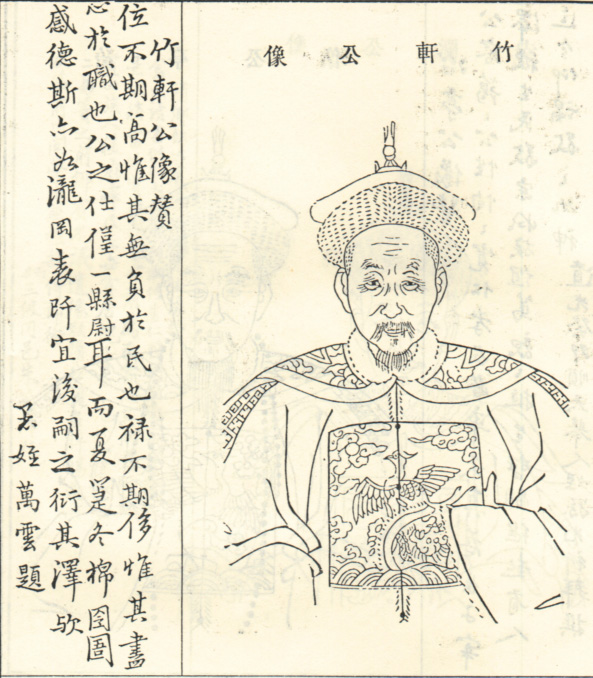 竹軒公像
竹軒公像贊
位不期高惟其無負於民也祿不期侈惟其盡
於職也公之仕僅一縣尉耳而夏箑冬棉囹圄
感德斯亦如瀧岡表阡宜後嗣之衍其澤歟
姪萬雲題